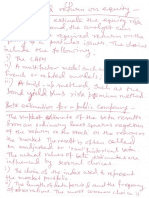 return on equity -
estimate the equity risk
the analyst can
required return on the
issuer. The choices
the following:
1) The CAPM
2) A multifactor model such as
French or related models.
3) A build-up method, such as the
bond yield plus risk premium method
Beta estimation for a public company -
The simplest estimate of the beta results
from an ordinary least squares regression
of the return on the stock on the return on
the market. The result is often called
an unadjusted or "raw" historical beta.
The actual values of beta estimates are
influenced by several choices.
1) The choice of the index used to represent
the market portfolio.
2) The length of data period and the frequency
of observations. The most common choice is